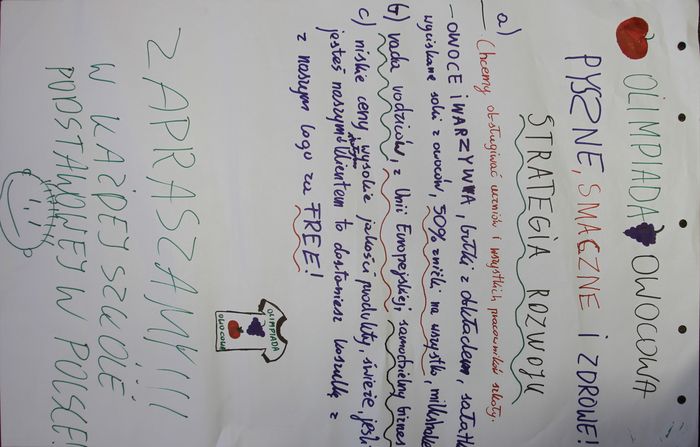 OLIMPIADA OWOCOWA
PYSZNE, SMACZNE I ZDROWE!
STRATEGIA ROZWOJU
a) Chcemy obsługiwać uczniów i wszystkich pracowników szkoły.
- OWOCE I WARZYWNA, bułki z obkładem, sałatki
wyciskane soki z owoców, 50% zniżki na wszystko, milkshake
b) rada rodziców, z Unii Europejskiej, samodzielny biznes
c) niskie ceny, wysokie jakości produkty, świeże, jeśli
jesteś naszym klientem to dostaniesz koszulkę z
z naszym logo za FREE!
OLIMPIADA
OWOCOWA
ZAPRASZAMY!!!
W KAŻDEJ SZKOLE
PODSTAWOWEJ W POLSCE!